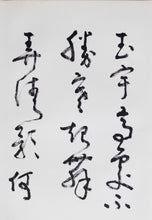 玉宇高處不
勝寒起舞
弄清影何